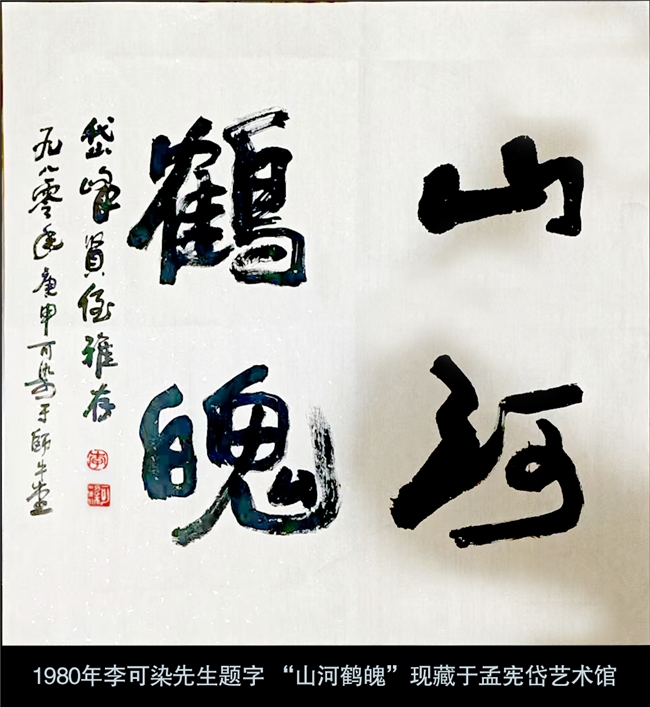 山河
鶴魄
岱峰賢侄雅存
一九八零年庚申可染于師牛堂
李
可染
1980年李可染先生题字 “山河鹤魄”现藏于孟宪岱艺术馆